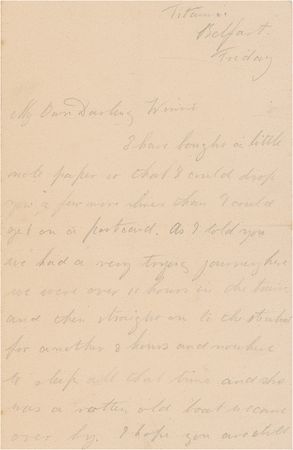 Titanic.
Belfast.
Friday
My Own Darling Winnie
I have bought a little
note paper so that I could drop
you a few more lines than I could
get on a postcard. As I told you
we had a very trying journey here
we were over 10 hours in the train
and then straight on to the
for another 8 hours and nowhere
to sleep all that time and she
was a rotten old boat we came
over by. I hope you are